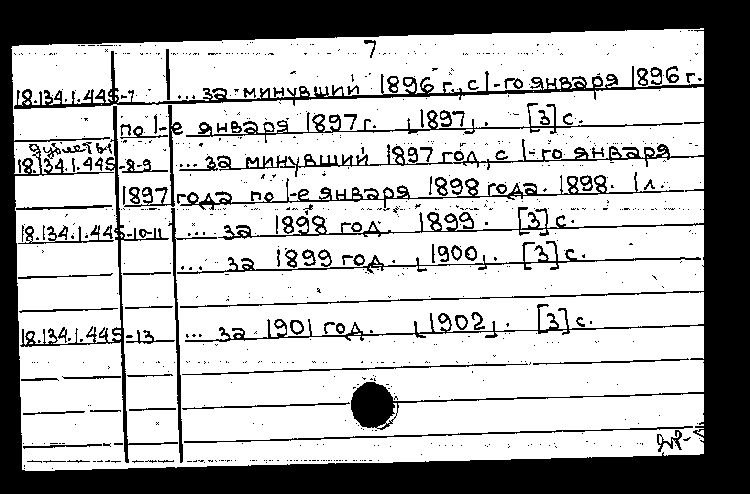 7
18.134.1.445-7 ... за минувший 1896 г., с 1-го января 1896 г.
по 1-е января 1897 г. [1897]. [3] с.
дублеты
18.134.1.445-8-9 ... за минувший 1897 год, с 1-го января
1897 года по 1-е января 1898 года. 1898. 1 л.
18.134.1.445-10-11 ... за 1898 год. 1899. [3] с.
... за 1899 год. [1900]. [3] с.
18.134.1.445-13 ... за 1901 год. [1902]. [3] с.